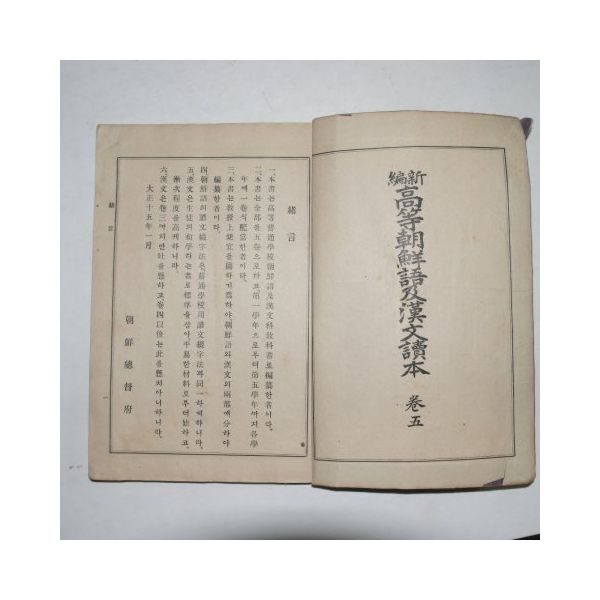 新編
高等朝鮮語及漢文讀本 卷五
緖言
一、本書는高等普通學校朝鮮語及漢文科敎科書로編纂한者이라.
二、本書는全部를五卷으로하고第一學年으로부터第五學年까지各學
年에一卷式配當한者이라.
三、本書는敎授上便宜를圖하기爲하야朝鮮語와漢文의兩部에分하야
編纂한者이라.
四、朝鮮語의諺文綴字法은普通學校用諺文綴字法과同一하게하니라.
五、漢文은生徒의初學하는者로標準을삼아平易한材料로부터始하고,
漸次程度를高케하니라.
六、漢文은卷三까지만吐를懸하고卷四以後는此를懸치아니하니라.
大正十五年一月
朝鮮總督府
緖言